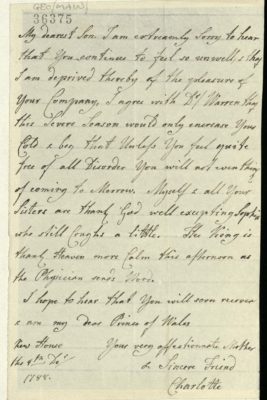 GEO/MAIN/
36375
My dearest Son. I am extreamly Sorry to hear
that You continue to feel so unwell, & that
I am deprived thereby of the pleasure of
Your Company, I agree with Dr Warren that
this Severe Season would only encrease Your
Cold & beg that Unless You feel quite
free of all Disorder You will not even think
of coming to Morrow. Myself & all Your
Sisters are thank God well excepting Sophia
who still Coughs a little. The King is
thank Heaven more Calm this afternoon as
the Physician sends Word.
I hope to hear that You will soon recover
& am my dear Prince of Wales
Kew House Your very affectionate Mother
the 8th De & Sincere Friend
1788. Charlotte